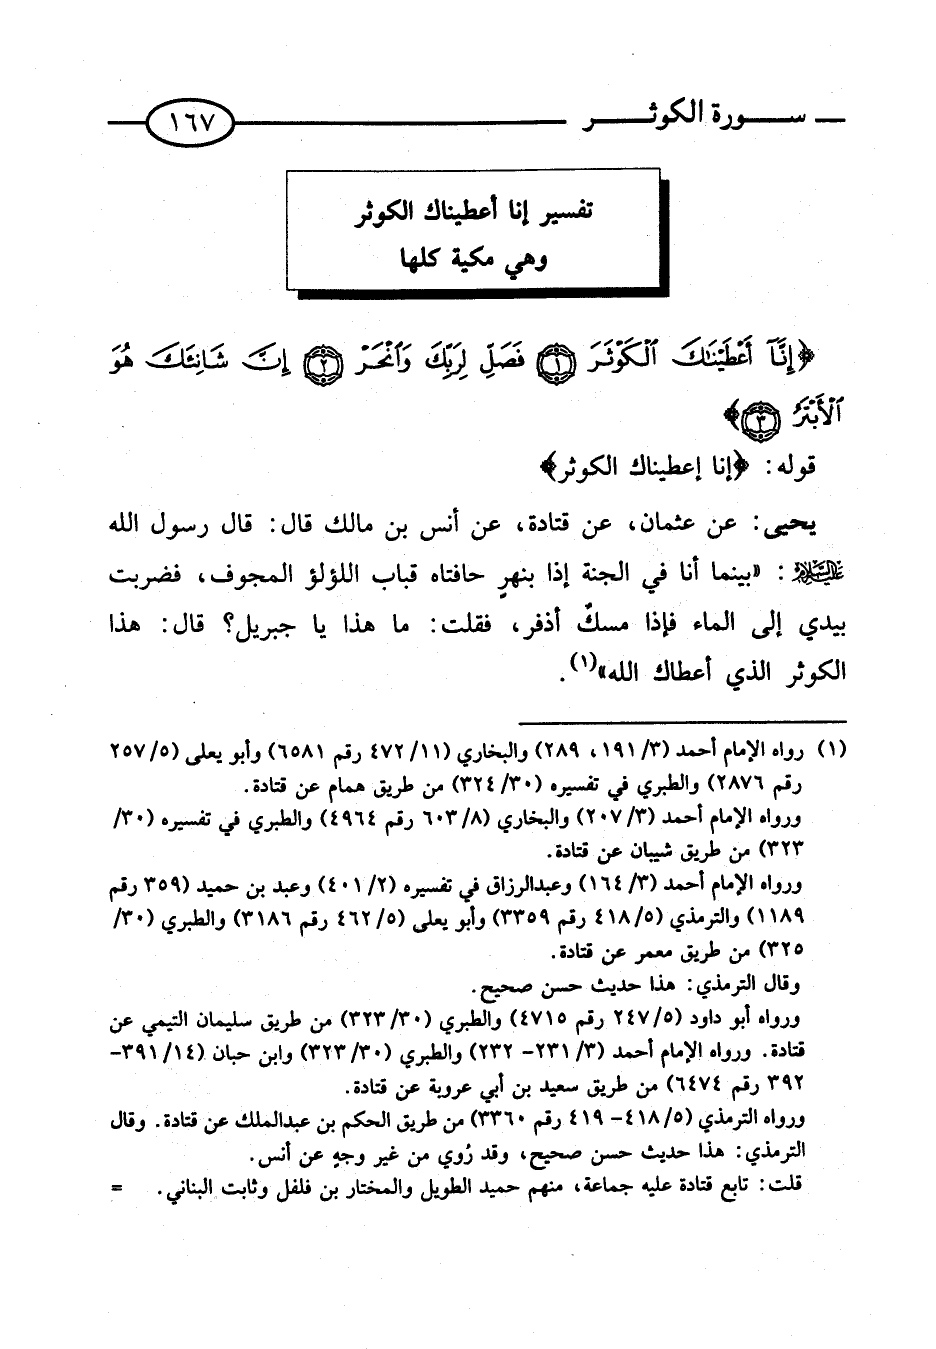 سورة الكوثر ١٦٧
تفسير إنا أعطيناك الكوثر
وهي مكية كلها
﴿إِنَّآ أَعْطَيْنَٰكَ ٱلْكَوْثَرَ ١ فَصَلِّ لِرَبِّكَ وَٱنْحَرْ ٢ إِنَّ شَانِئَكَ هُوَ
ٱلْأَبْتَرُ ٣﴾
قوله: ﴿إنا إعطيناك الكوثر﴾
يحيى: عن عثمان، عن قتادة، عن أنس بن مالك قال: قال رسول الله
عليه السلام: «بينما أنا في الجنة إذا بنهرٍ حافتاه قباب اللؤلؤ المجوف، فضربت
بيدي إلى الماء فإذا مسكٌ أذفر، فقلت: ما هذا يا جبريل؟ قال: هذا
الكوثر الذي أعطاك الله»(١).
(١) رواه الإمام أحمد (٣/ ١٩١، ٢٨٩) والبخاري (١١/ ٤٧٢ رقم ٦٥٨١) وأبو يعلى (٥/ ٢٥٧
رقم ٢٨٧٦) والطبري في تفسيره (٣٠/ ٣٢٤) من طريق همام عن قتادة.
ورواه الإمام أحمد (٣/ ٢٠٧) والبخاري (٨/ ٦٠٣ رقم ٤٩٦٤) والطبري في تفسيره (٣٠/
٣٢٣) من طريق شيبان عن قتادة.
ورواه الإمام أحمد (٣/ ١٦٤) وعبدالرزاق في تفسيره (٢/ ٤٠١) وعبد بن حميد (٣٥٩ رقم
١١٨٩) والترمذي (٥/ ٤١٨ رقم ٣٣٥٩) وأبو يعلى (٥/ ٤٦٢ رقم ٣١٨٦) والطبري (٣٠/
٣٢٥) من طريق معمر عن قتادة.
وقال الترمذي: هذا حديث حسن صحيح.
ورواه أبو داود (٥/ ٢٤٧ رقم ٤٧١٥) والطبري (٣٠/ ٣٢٣) من طريق سليمان التيمي عن
قتادة. ورواه الإمام أحمد (٣/ ٢٣١- ٢٣٢) والطبري (٣٠/ ٣٢٣) وابن حبان (١٤/ ٣٩١-
٣٩٢ رقم ٦٤٧٤) من طريق سعيد بن أبي عروبة عن قتادة.
ورواه الترمذي (٥/ ٤١٨- ٤١٩ رقم ٣٣٦٠) من طريق الحكم بن عبدالملك عن قتادة. وقال
الترمذي: هذا حديث حسن صحيح، وقد رُوي من غير وجهٍ عن أنس.
قلت: تابع قتادة عليه جماعة، منهم حميد الطويل والمختار بن فلفل وثابت البناني. =